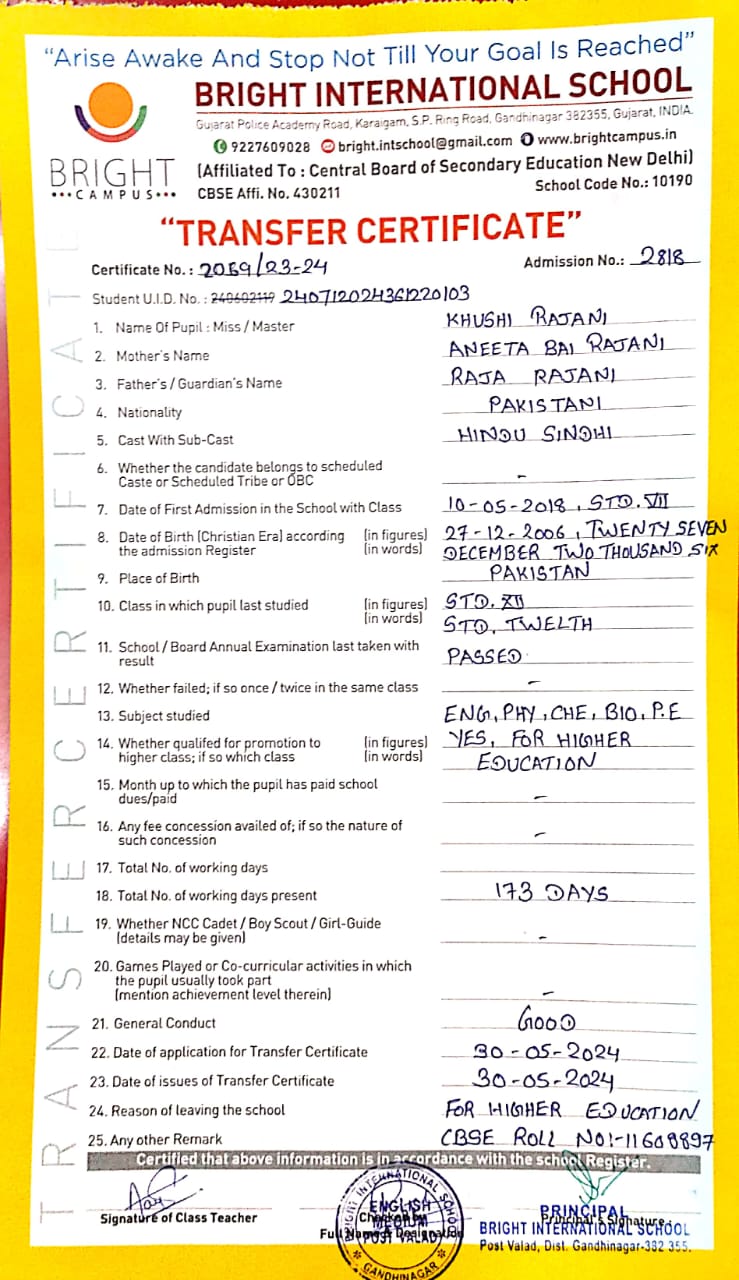 "Arise Awake And Stop Not Till Your Goal Is Reached"
BRIGHT INTERNATIONAL SCHOOL
Gujarat Police Academy Road, Karaigam, S.P. Ring Road, Gandhinagar 382355, Gujarat, INDIA.
9227609028 bright.intschool@gmail.com www.brightcampus.in
(Affiliated To : Central Board of Secondary Education New Delhi)
CBSE Affi. No. 430211 School Code No.: 10190
BRIGHT
CAMPUS
"TRANSFER CERTIFICATE"
Certificate No. : 2069/23-24 Admission No.: 2818
Student U.I.D. No. : 240602119 240712024361220103
1. Name Of Pupil : Miss / Master KHUSHI RAJANI
2. Mother's Name ANEETA BAI RAJANI
3. Father's / Guardian's Name RAJA RAJANI
4. Nationality PAKISTANI
5. Cast With Sub-Cast HINDU SINDHI
6. Whether the candidate belongs to scheduled
Caste or Scheduled Tribe or OBC -
7. Date of First Admission in the School with Class 10-05-2018, STD. VII
8. Date of Birth (Christian Era) according (in figures) 27-12-2006, TWENTY SEVEN
the admission Register (in words) DECEMBER TWO THOUSAND SIX
9. Place of Birth PAKISTAN
10. Class in which pupil last studied (in figures) STD. XII
(in words) STD. TWELTH
11. School / Board Annual Examination last taken with
result PASSED
12. Whether failed; if so once / twice in the same class -
13. Subject studied ENG, PHY, CHE, BIO, P.E
14. Whether qualifed for promotion to (in figures) YES, FOR HIGHER
higher class; if so which class (in words) EDUCATION
15. Month up to which the pupil has paid school
dues/paid -
16. Any fee concession availed of; if so the nature of
such concession -
17. Total No. of working days
18. Total No. of working days present 173 DAYS
19. Whether NCC Cadet / Boy Scout / Girl-Guide
(details may be given) -
20. Games Played or Co-curricular activities in which
the pupil usually took part
(mention achievement level therein) -
21. General Conduct GOOD
22. Date of application for Transfer Certificate 30-05-2024
23. Date of issues of Transfer Certificate 30-05-2024
24. Reason of leaving the school FOR HIGHER EDUCATION
25. Any other Remark CBSE ROLL NO:-11608897
Certified that above information is in accordance with the school Register.
Signature of Class Teacher
Checked by
Full Name & Designation
Principal's Signature
BRIGHT INTERNATIONAL SCHOOL
ENGLISH
MEDIUM
POST VALAD
GANDHINAGAR
PRINCIPAL
BRIGHT INTERNATIONAL SCHOOL
Post Valad, Dist. Gandhinagar-382 355.
TRANSFER CERTIFICATE